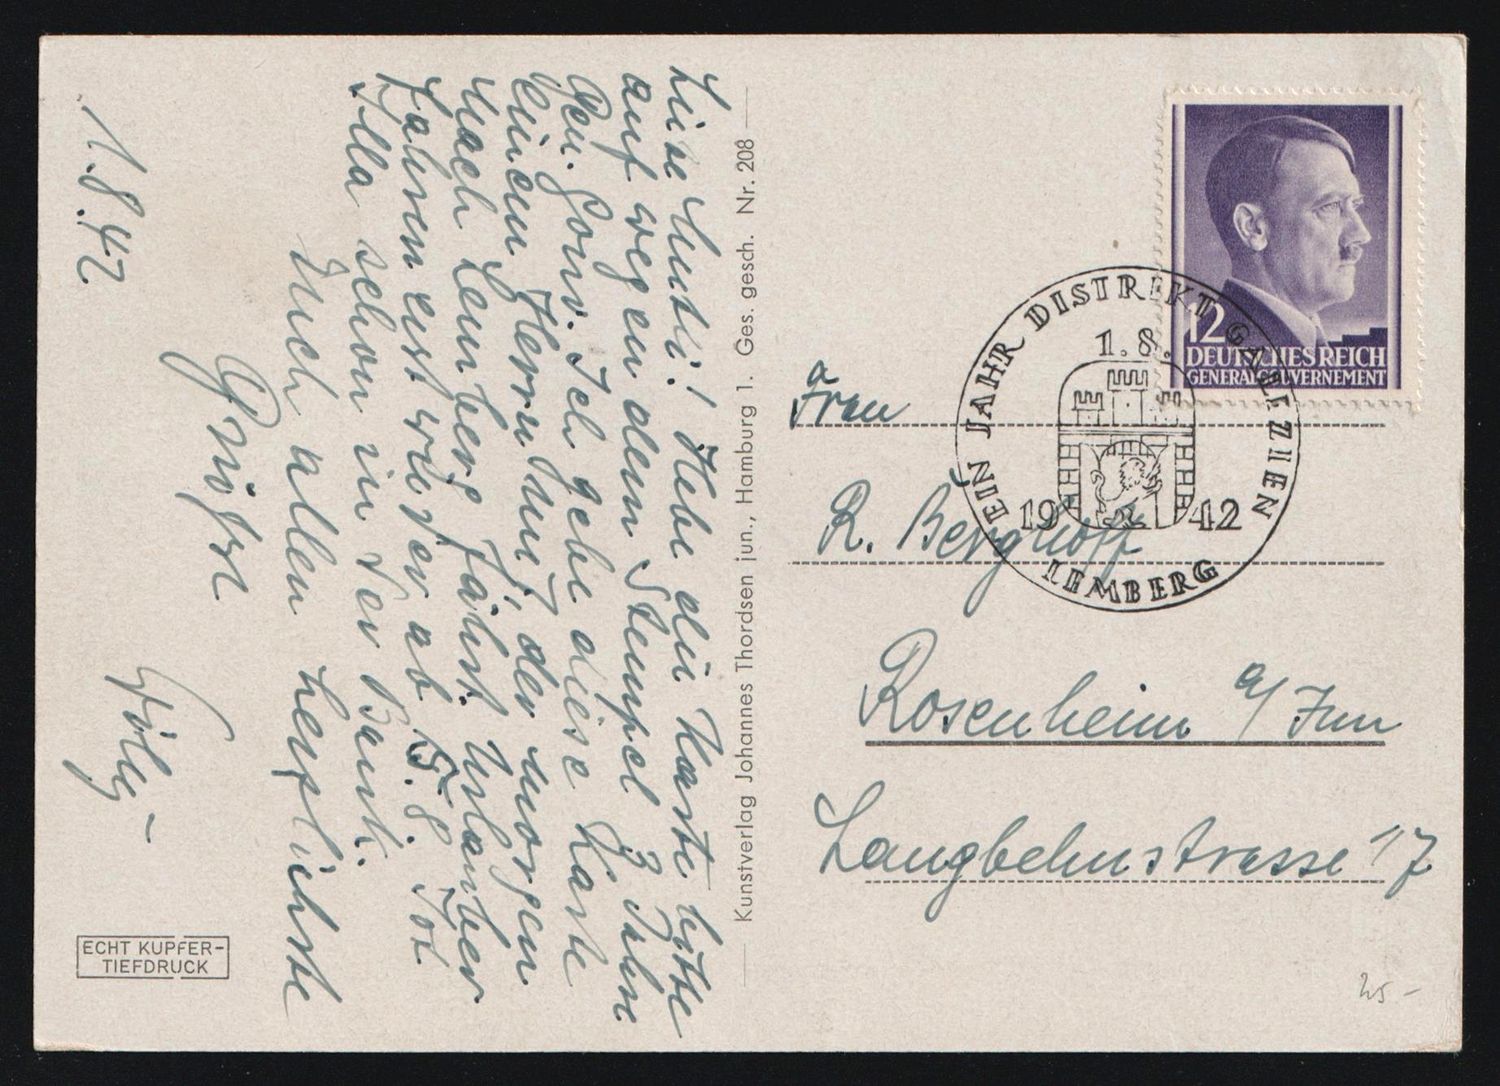 1.8.42
Liebe Mutti! Hebe die Karte bitte
auf wegen dem Stempel 3 Jahre
Gen. Gouv. Ich gebe diese Karte
einem Herrn mit, der morgen
nach Lemberg fährt. Urlauber
fahren erst wieder ab 5.8. Ich
schon in der Bank.
Euch allen herzlichste
Grüße
ECHT KUPFER-
TIEFDRUCK
Kunstverlag Johannes Thordsen jun., Hamburg 1. Ges. gesch. Nr. 208
12
DEUTSCHES REICH
GENERALGOUVERNEMENT
EIN JAHR DISTRIKT GALIZIEN
1.8.
19 42
LEMBERG
Frau
R. Berghoff
Rosenheim a/Inn
Langbehnstrasse 17
25.-